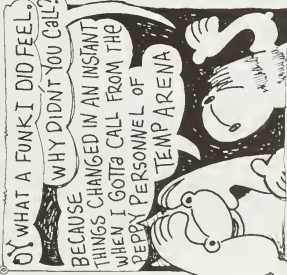 OY WHAT A FUNK I DID FEEL.
WHY DIDN'T YOU CALL?
BECAUSE
THINGS CHANGED IN AN INSTANT
WHEN I GOTTA CALL FROM THE
PEPPY PERSONNEL OF
TEMP ARENA